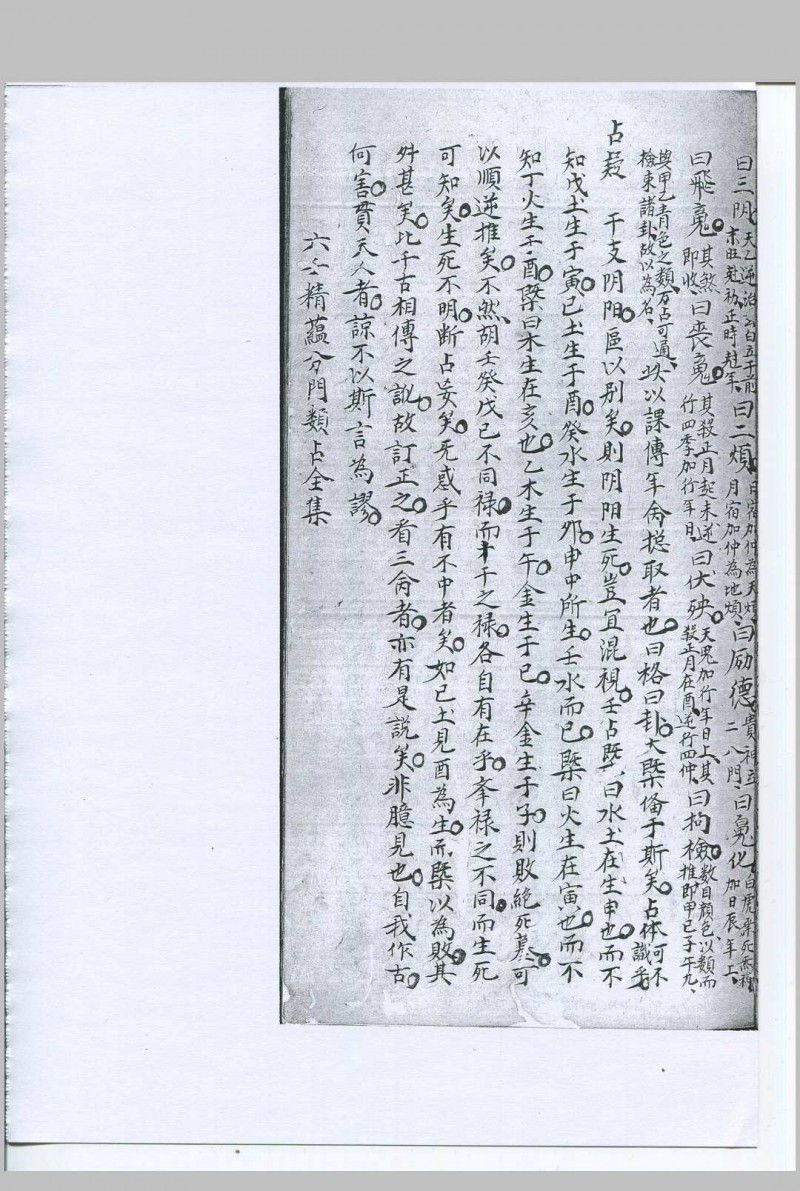 曰三阴天乙逆治 白五于前 末旺発初正時尅年曰二煩日宿加仲為天煩月宿加仲為地煩曰励德貴神立二八門曰䰟化白虎乗死 加日辰年上
曰飛䰟其煞 即收曰喪䰟其殺正月起未逆行四季加行年日曰伏殃天鬼加行年日上其殺正月在酉逆行四仲曰拘檢数目顔色以類而推即甲己子午九
與甲乙青色之類万占可通檢束諸卦故以為名此以課傳年命揔取者也曰格曰卦大槩偹于斯矣占体可不識乎
占叚 干支阴阳區以别矣則阴阳生死豈宜混視壬占既曰水土在生申也而不
知戊土生于寅己土生于酉癸水生于夘申中所生壬水而已槩曰火生在寅也而不
知丁火生于酉槩曰木生在亥也乙木生于午金生于巳辛金生于子則敗絶死墓可
以順逆推矣不然胡壬癸戊己不同禄而十干之禄各自有在乎夲禄之不同而生死
可知矣生死不明断占妄矣死惑乎有不中者矣如己土見酉為生而槩以為敗其
舛甚矣比千古相傳之訛故訂正之看三命者亦有是說矣非臆見也自我作古
何害貫天人者諒不以斯言為謬
六壬精蘊分門類占全集